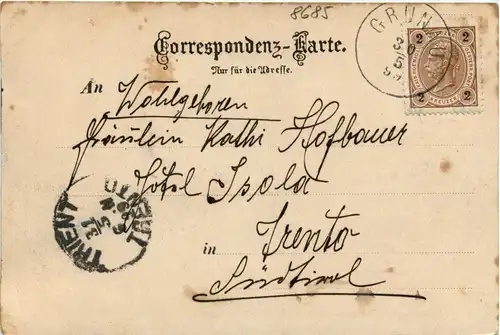 8685
GRUN
30
5
99
2 2
2 KREUZER 2
Correspondenz-Karte.
Nur für die Adresse.
An Wohlgeboren
Fräulein Kathi Hofbauer
Hotel Isola
in Trento
Südtirol
TRIENT
TRENTO
31
5
99